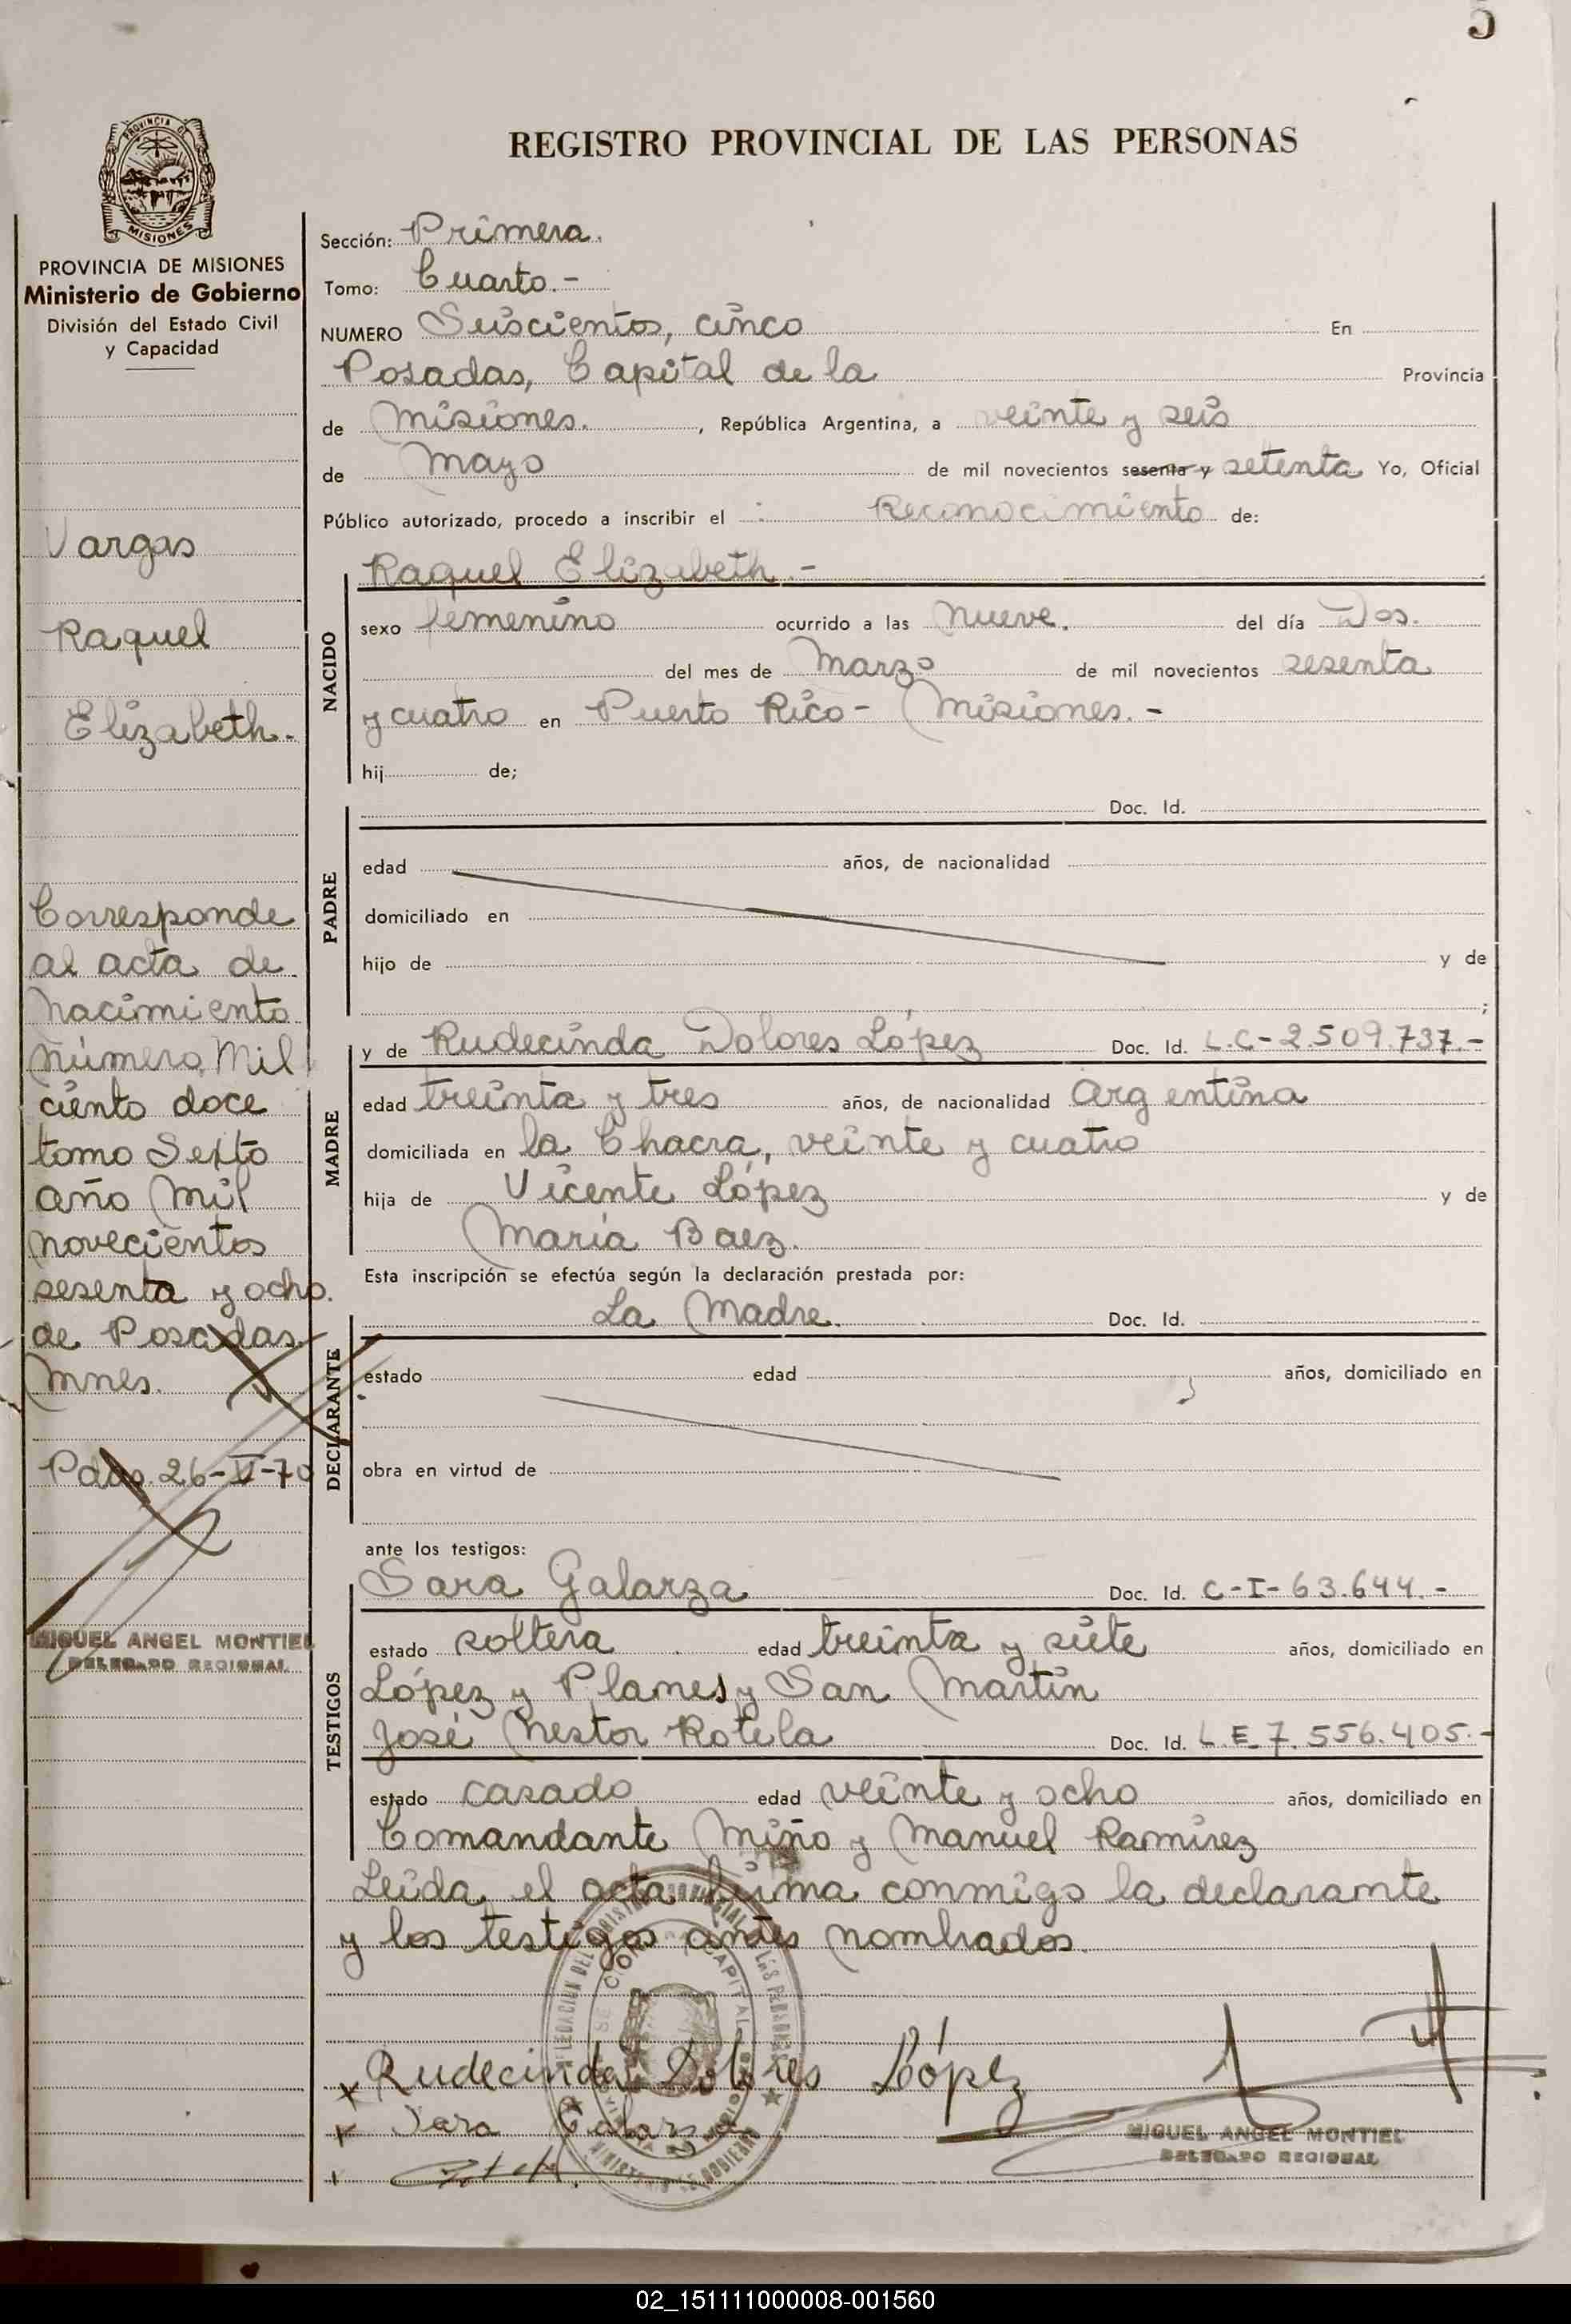 5
REGISTRO PROVINCIAL DE LAS PERSONAS
PROVINCIA DE MISIONES
PROVINCIA DE MISIONES
Ministerio de Gobierno
División del Estado Civil
y Capacidad
Vargas
Raquel
Elizabeth.-
Corresponde
al acta de
nacimiento
número, Mil
ciento doce
tomo Sexto
año Mil
novecientos
sesenta y ocho.
de Posadas.
Mnes.
Pdas. 26-V-70
MIGUEL ANGEL MONTIEL
DELEGADO REGIONAL
Sección: Primera.
Tomo: Cuarto.-
NUMERO Seiscientos, cinco En
Posadas, Capital de la Provincia
de Misiones. , República Argentina, a veinte y seis
de Mayo de mil novecientos sesenta y setenta Yo, Oficial
Público autorizado, procedo a inscribir el Reconocimiento de:
NACIDO
Raquel Elizabeth.-
sexo femenino ocurrido a las Nueve. del día Dos.
del mes de Marzo de mil novecientos sesenta
y cuatro en Puerto Rico- Misiones.-
hij de;
PADRE
Doc. Id.
edad años, de nacionalidad
domiciliado en
hijo de y de
;
MADRE
y de Rudecinda Dolores López Doc. Id. L.C-2.509.737.-
edad treinta y tres años, de nacionalidad Argentina
domiciliada en la Chacra, veinte y cuatro
hija de Vicente López y de
María Baez.
Esta inscripción se efectúa según la declaración prestada por:
DECLARANTE
La Madre. Doc. Id.
estado edad años, domiciliado en
obra en virtud de
ante los testigos:
TESTIGOS
Sara Galarza Doc. Id. C-I-63.644.-
estado soltera edad treinta y siete años, domiciliado en
López y Planes y San Martín
José Nestor Rotela Doc. Id. L.E_7.556.405.-
estado casado edad veinte y ocho años, domiciliado en
Comandante Miño y Manuel Ramirez
Leida el acta firma conmigo la declarante
y los testigos antes nombrados.
Rudecinda Dolores López
Sara Galarza
MIGUEL ANGEL MONTIEL
DELEGADO REGIONAL
02_151111000008-001560